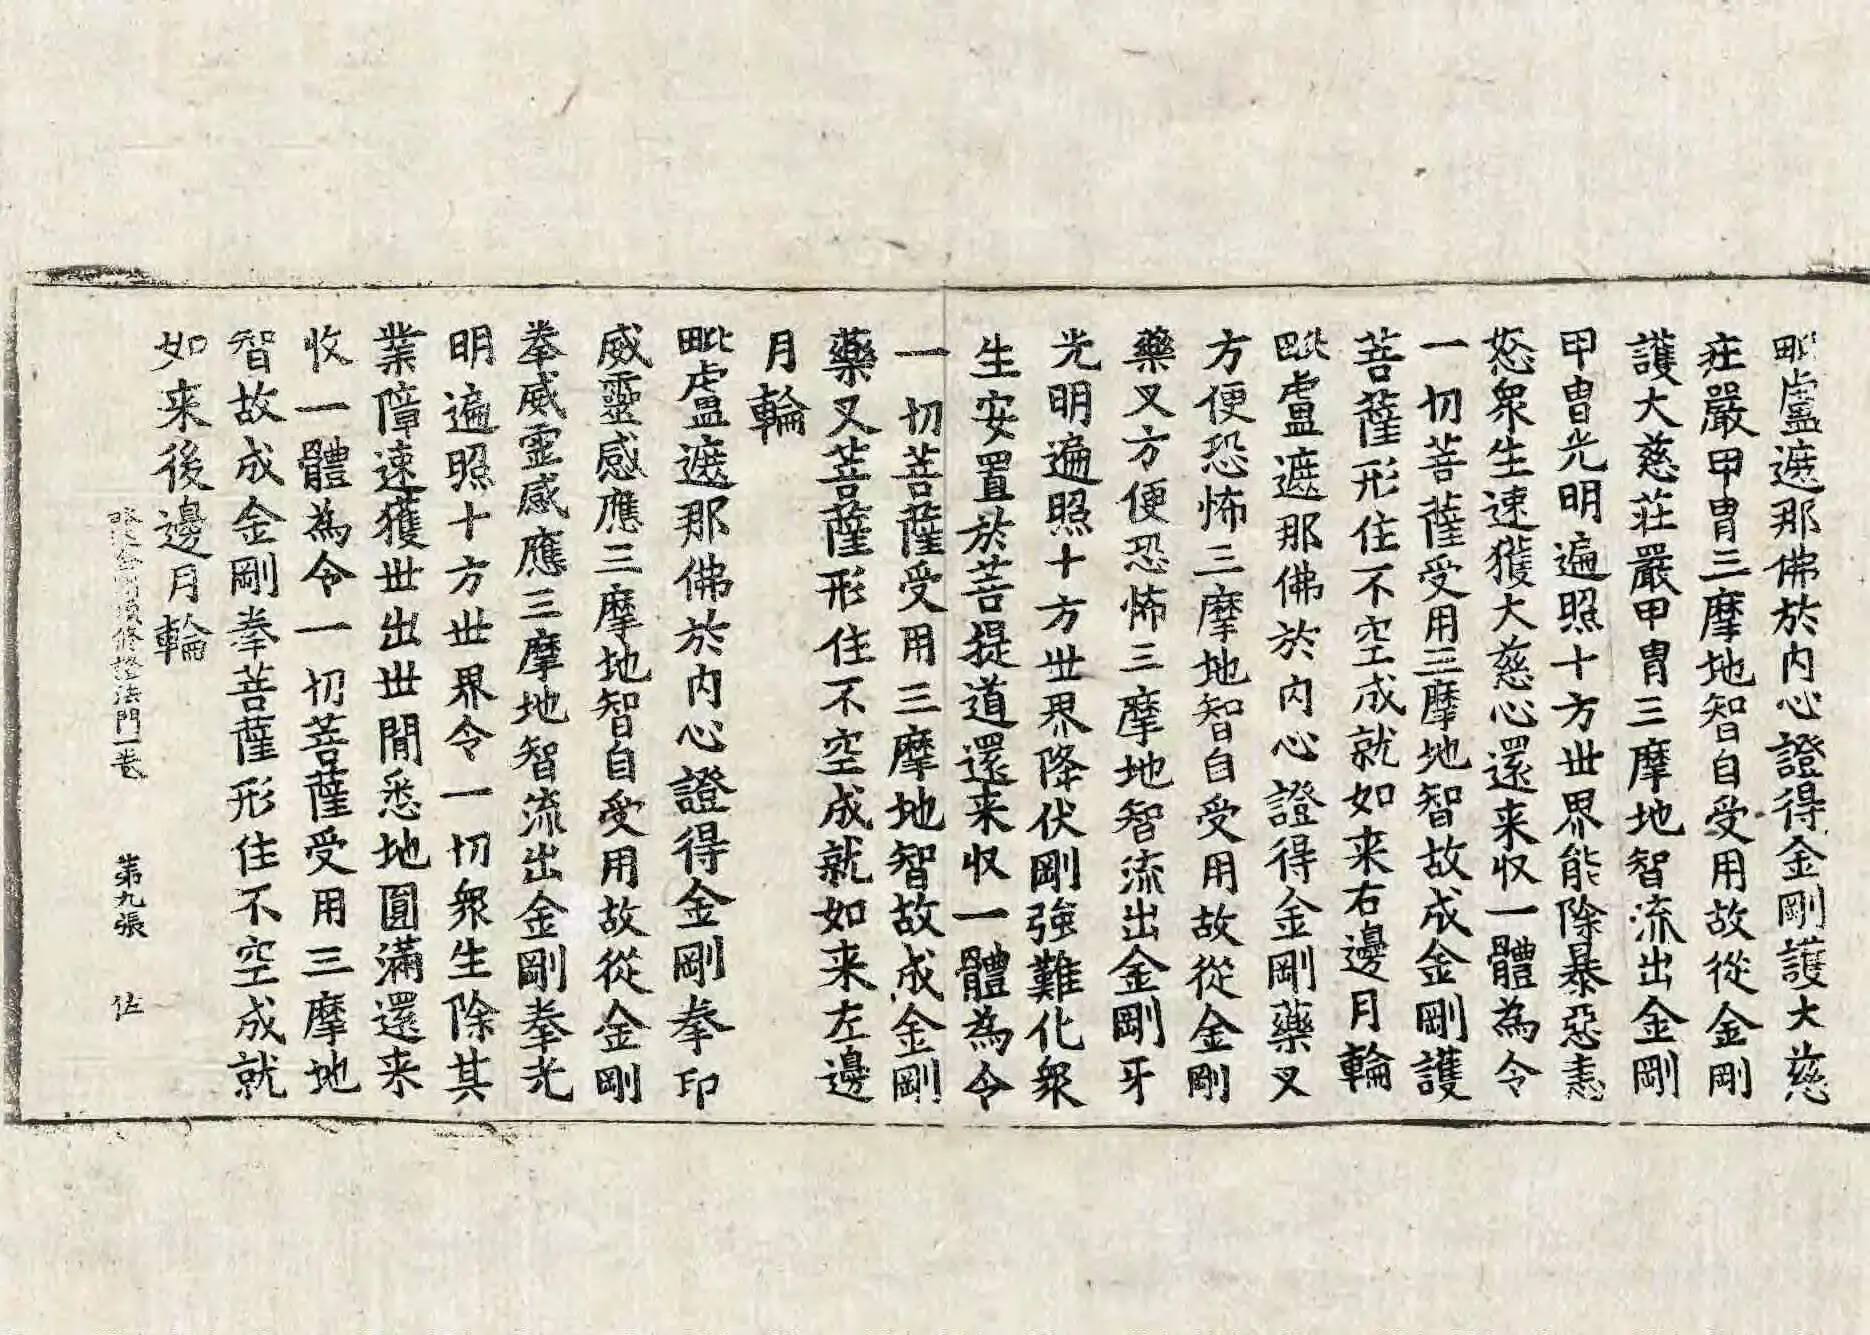 毗盧遮那佛於內心證得金剛護大慈
莊嚴甲冑三摩地智自受用故從金剛
護大慈莊嚴甲冑三摩地智流出金剛
甲冑光明遍照十方世界能除暴惡恚
怒眾生速獲大慈心還来収一體為令
一切菩薩受用三摩地智故成金剛護
菩薩形住不空成就如来右邊月輪
毗盧遮那佛於內心證得金剛藥叉
方便恐怖三摩地智自受用故從金剛
藥叉方便恐怖三摩地智流出金剛牙
光明遍照十方世界降伏剛強難化眾
生安置於菩提道還来収一體為令
一切菩薩受用三摩地智故成金剛
藥叉菩薩形住不空成就如来左邊
月輪
毗盧遮那佛於內心證得金剛拳印
威靈感應三摩地智自受用故從金剛
拳威靈感應三摩地智流出金剛拳光
明遍照十方世界令一切眾生除其
業障速獲世出世間悉地圓滿還来
收一體為令一切菩薩受用三摩地
智故成金剛拳菩薩形住不空成就
如来後邊月輪
略述金剛頂修證法門一卷 第九張 佐